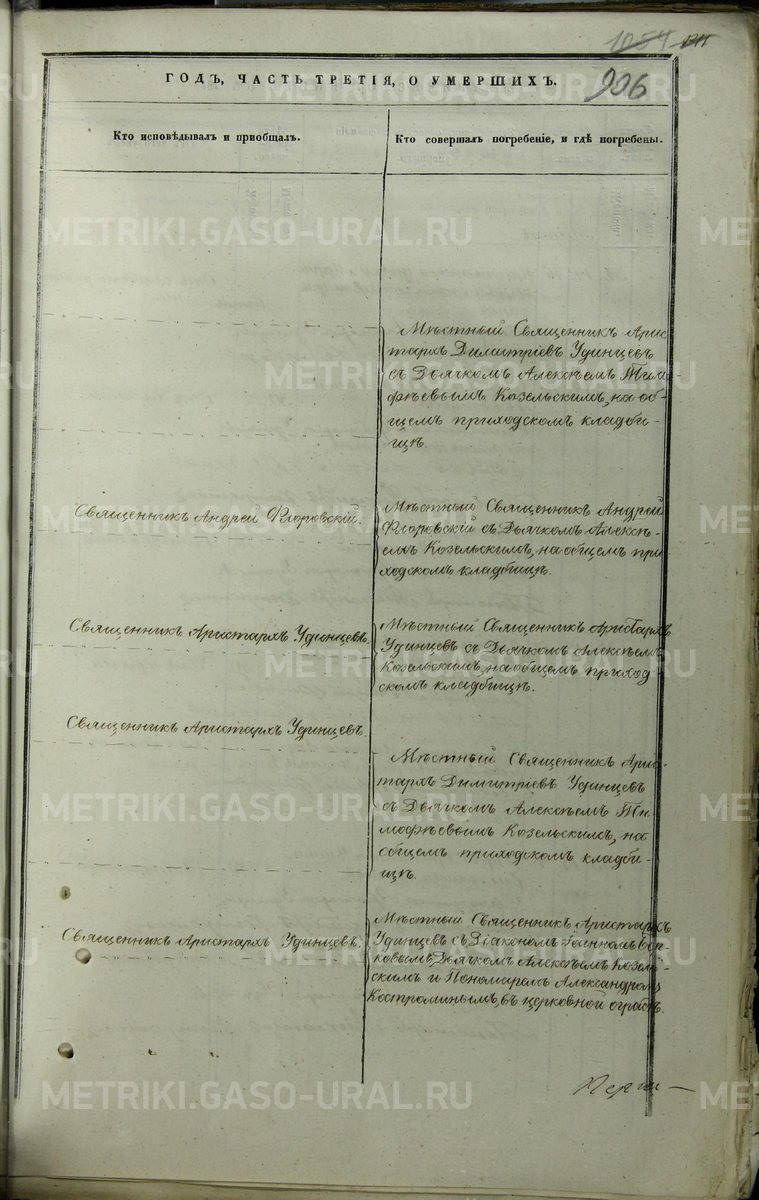 906
ГОДЪ, ЧАСТЬ ТРЕТІЯ, О УМЕРШИХЪ.
Кто исповѣдывалъ и приобщалъ.
Кто совершалъ погребеніе, и гдѣ погребены.
Мѣстный Священникъ Арис
тархъ Димитріевъ Удинцевъ
съ Дьячкомъ Алексѣемъ Тимо-
фѣевымъ Козельскимъ, на об-
щемъ приходскомъ кладби-
щѣ.
Священникъ Андрей Флоровскій.
Мѣстный Священникъ Андрей
Флоровскій съ Дьячкомъ Алексѣ-
емъ Козельскимъ, на общемъ при
ходскомъ кладбищѣ.
Священникъ Аристархъ Удинцевъ.
Мѣстный Священникъ Аристархъ
Удинцевъ съ Дьячкомъ Алексѣемъ
Козельскимъ, на общемъ приход
скомъ кладбищѣ.
Священникъ Аристархъ Удинцевъ.
Мѣстный Священникъ Арис-
тархъ Димитріевъ Удинцевъ
съ Дьячкомъ Алексѣемъ Ти-
мофѣевымъ Козельскимъ, на
общемъ приходскомъ кладби-
щѣ.
Священникъ Аристархъ Удинцевъ.
Мѣстный Священникъ Аристархъ
Удинцевъ съ Діакономъ Іоанномъ
Дьячкомъ Алексѣемъ Козель-
скимъ и Пономаремъ Александромъ
Костроминымъ, въ церковной оградѣ.
METRIKI.GASO-URAL.RU